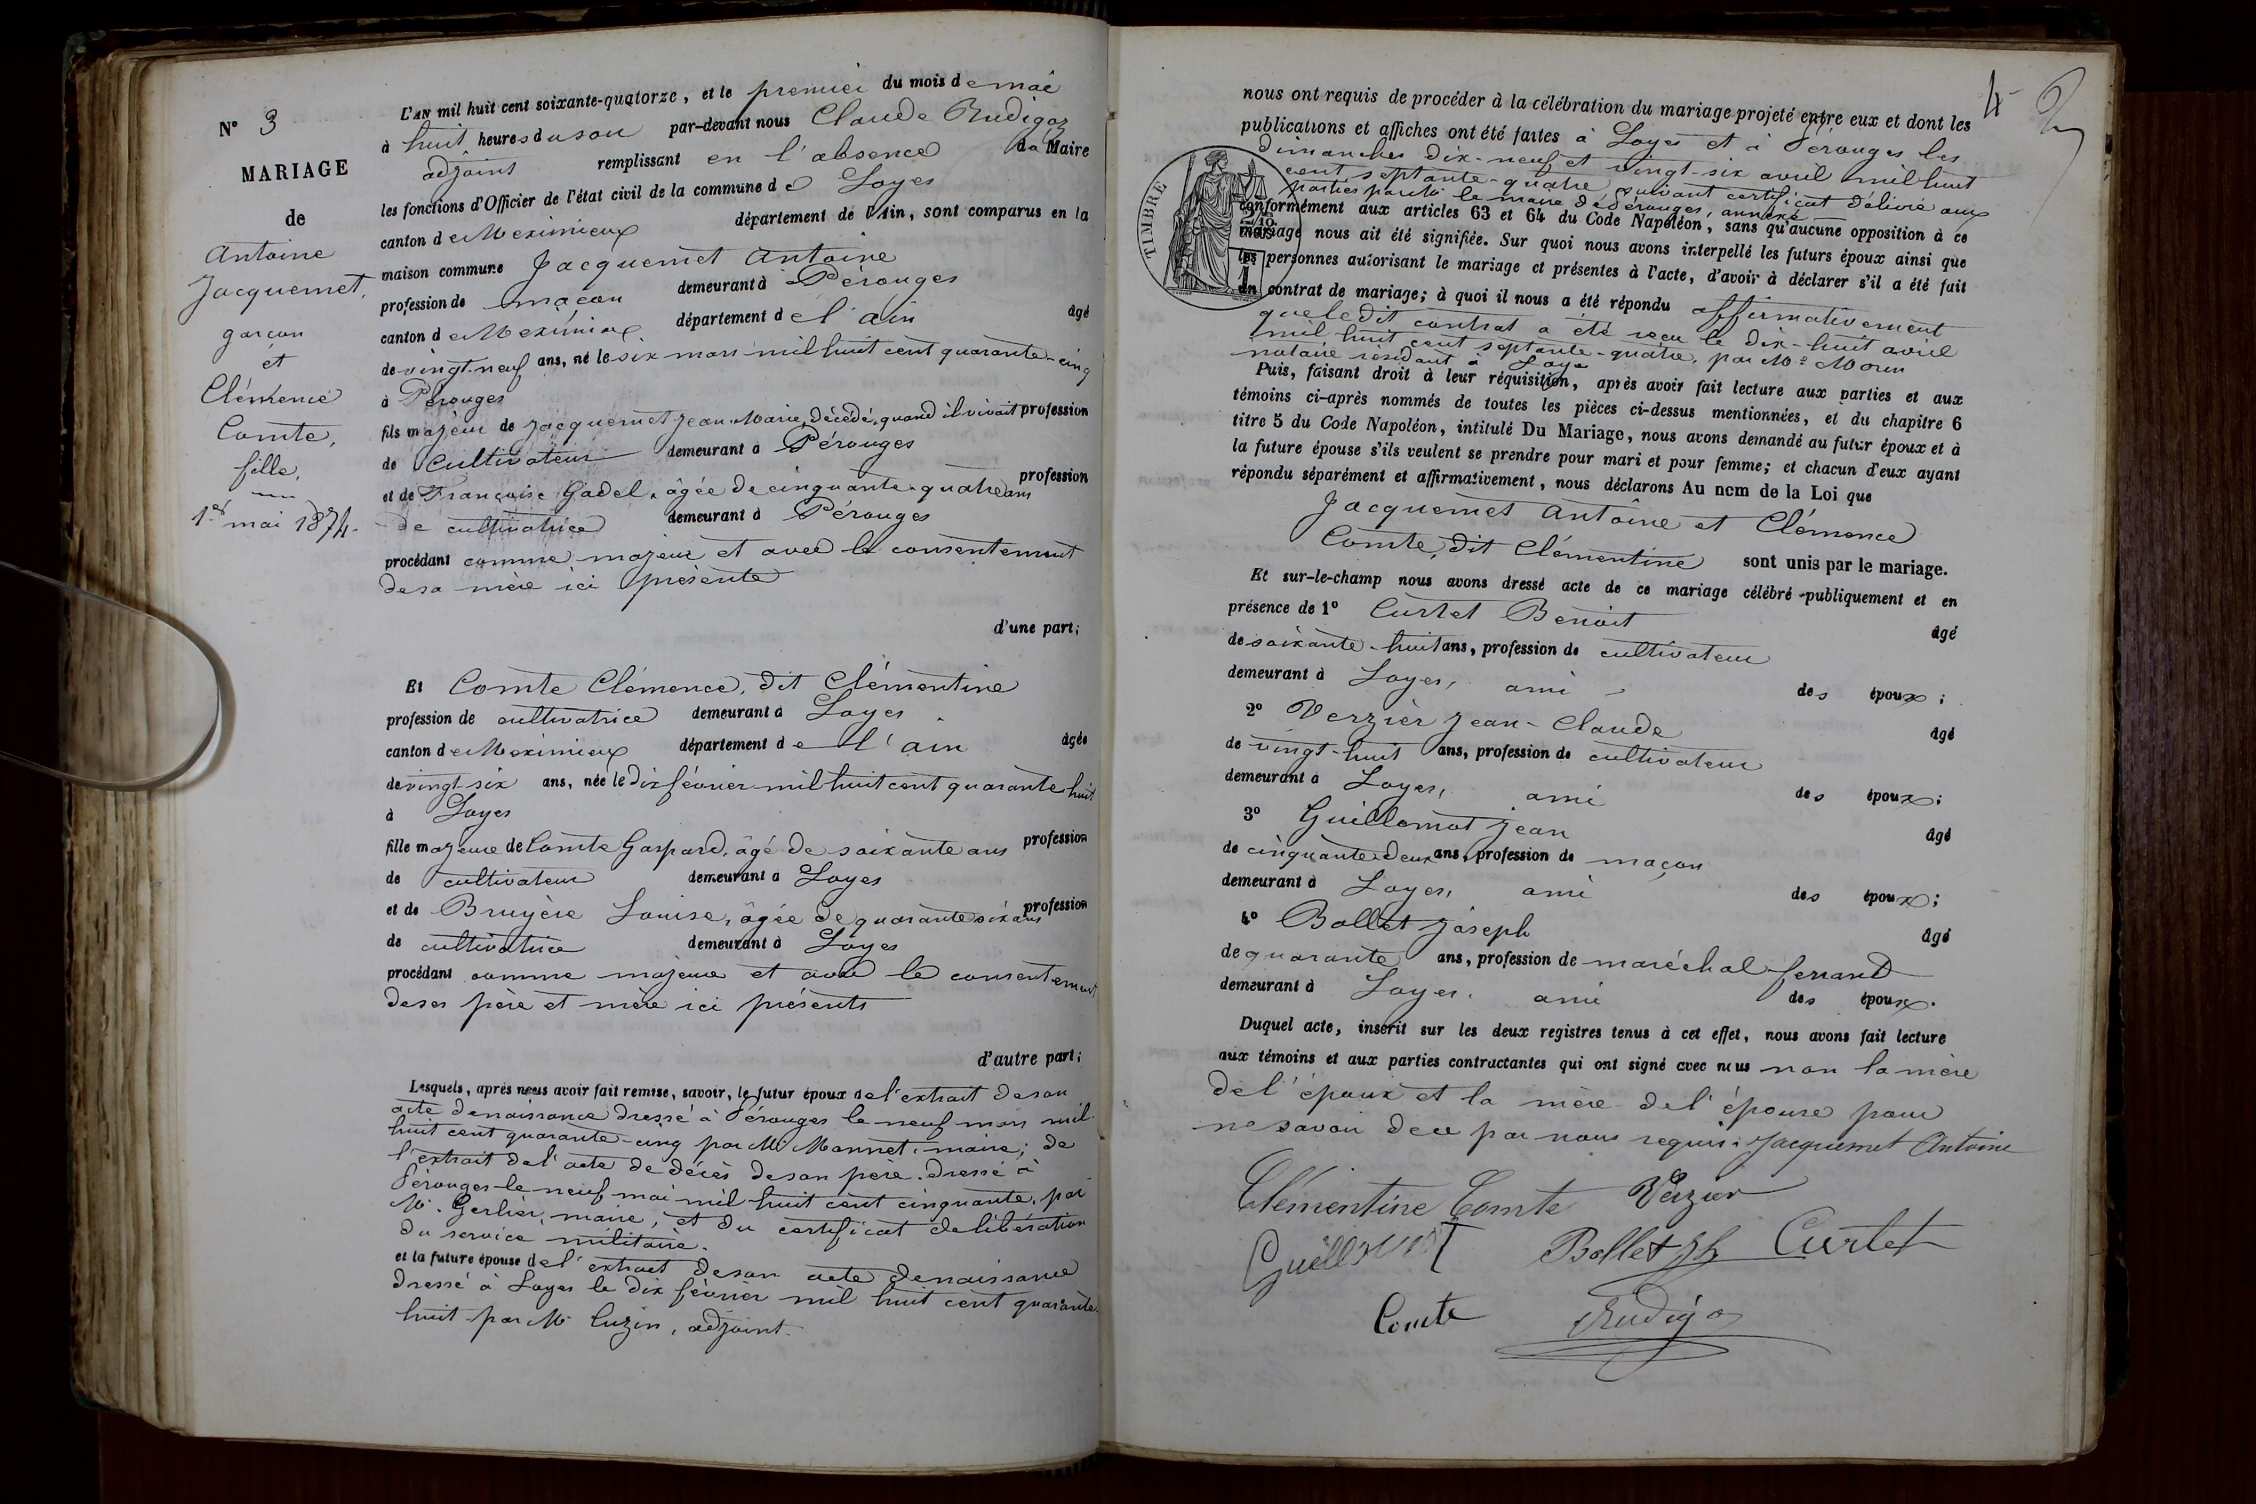 N° 3
MARIAGE
de
Antoine
Jacquemet,
garçon
et
Clémence
Comte,
fille,
1er mai 1874.
L'AN mil huit cent soixante-quatorze, et le premier du mois de mai
à huit heures du soir par-devant nous Claude Rudigoz
adjoint remplissant en l'absence du Maire
les fonctions d'Officier de l'état civil de la commune de Loyes
canton de Meximieux département de l'Ain, sont comparus en la
maison commune Jacquemet Antoine
profession de maçon demeurant à Pérouges
canton de Meximieux département de l'ain âgé
de vingt-neuf ans, né le six mars mil huit cent quarante-cinq
à Pérouges
fils majeur de Jacquemet Jean-Marie, décédé, quand il vivait profession
de cultivateur demeurant à Pérouges
et de Françoise Gadel, âgée de cinquante-quatre ans profession
de cultivatrice demeurant à Pérouges
procédant comme majeur et avec le consentement
de sa mère ici présente
d'une part;
Et Comte Clémence, dit Clémentine
profession de cultivatrice demeurant à Loyes
canton de Meximieux département de l'ain âgée
de vingt-six ans, née le dix février mil huit cent quarante huit
à Loyes
fille majeure de Comte Gaspard, âgé de soixante ans profession
de cultivateur demeurant à Loyes
et de Bruyère Louise, âgée de quarante six ans profession
de cultivatrice demeurant à Loyes
procédant comme majeure et avec le consentement
de ses père et mère ici présents
d'autre part;
Lesquels, après nous avoir fait remise, savoir, le futur époux de l'extrait de son
acte de naissance dressé à Pérouges le neuf mars mil
huit cent quarante-cinq par Mr Monnet, maire; de
l'extrait de l'acte de décès de son père dressé à
Pérouges le neuf mai mil huit cent cinquante, par
M. Gerlier, maire, et du certificat de libération
du service militaire.
et la future épouse de l'extrait de son acte de naissance
dressé à Loyes le dix février mil huit cent quarante
huit par Mr Cuzin, adjoint.
4
nous ont requis de procéder à la célébration du mariage projeté entre eux et dont les
publications et affiches ont été faites à Loyes et à Pérouges les
dimanches dix-neuf et vingt-six avril mil huit
cent septante-quatre, suivant certificat délivré aux
parties par le maire de Pérouges, annexé
conformément aux articles 63 et 64 du Code Napoléon, sans qu'aucune opposition à ce
mariage nous ait été signifiée. Sur quoi nous avons interpellé les futurs époux ainsi que
les personnes autorisant le mariage et présentes à l'acte, d'avoir à déclarer s'il a été fait
un contrat de mariage; à quoi il nous a été répondu affirmativement
que ledit contrat a été reçu le dix-huit avril
mil huit cent septante-quatre, par Me Morin
notaire résidant à Loyes
TIMBRE
Puis, faisant droit à leur réquisition, après avoir fait lecture aux parties et aux
témoins ci-après nommés de toutes les pièces ci-dessus mentionnées, et du chapitre 6
titre 5 du Code Napoléon, intitulé Du Mariage, nous avons demandé au futur époux et à
la future épouse s'ils veulent se prendre pour mari et pour femme; et chacun d'eux ayant
répondu séparément et affirmativement, nous déclarons Au nom de la Loi que
Jacquemet Antoine et Clémence
Comte, dit Clémentine sont unis par le mariage.
Et sur-le-champ nous avons dressé acte de ce mariage célébré publiquement et en
présence de 1° Curtet Benoit âgé
de soixante-huit ans, profession de cultivateur
demeurant à Loyes, ami des époux;
2° Verzier Jean-Claude âgé
de vingt-huit ans, profession de cultivateur
demeurant à Loyes, ami des époux;
3° Guillomot Jean âgé
de cinquante deux ans, profession de maçon
demeurant à Loyes, ami des époux;
4° Bollet Joseph âgé
de quarante ans, profession de maréchal-ferrand
demeurant à Loyes, ami des époux.
Duquel acte, inscrit sur les deux registres tenus à cet effet, nous avons fait lecture
aux témoins et aux parties contractantes qui ont signé avec nous non la mère
de l'époux et la mère de l'épouse pour
ne savoir de ce par nous requis. Jacquemet Antoine
Clémentine Comte Verzier
Guillomot Bollet Jh Curtet
Comte Rudigoz